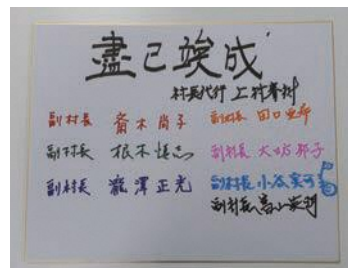 盡己竢成
村長代行 上村春樹
副村長 齋木尚子 副村長 田口亜希
副村長 根木慎志 副村長 大日方邦子
副村長 瀧澤正光 副村長 小谷実可子
副村長